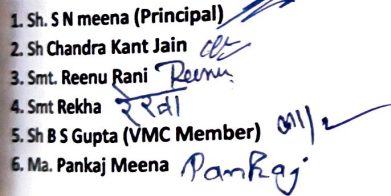 1. Sh. S N meena (Principal)
2. Sh Chandra Kant Jain
3. Smt. Reenu Rani Reenu
4. Smt Rekha रेखा
5. Sh B S Gupta (VMC Member)
6. Ma. Pankaj Meena Pankaj